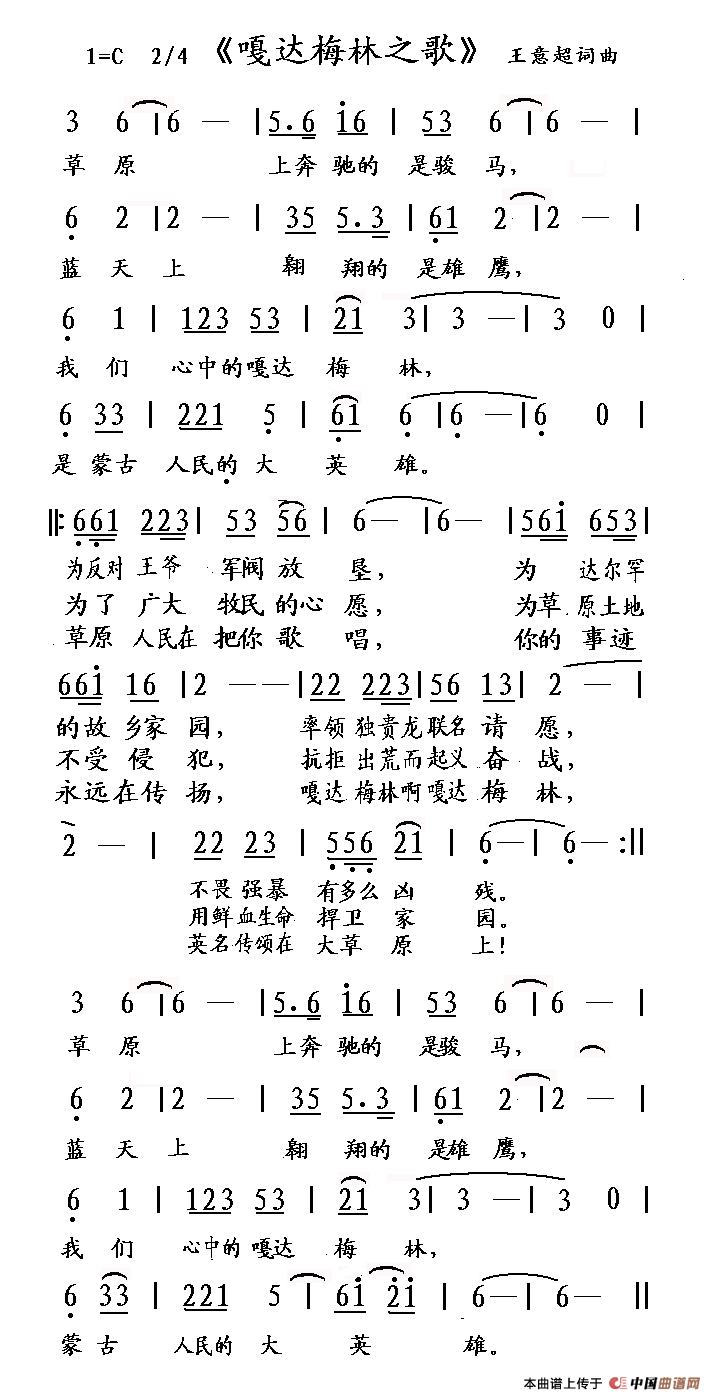 1=C 2/4 《嘎达梅林之歌》 王意超词曲
3 6 | 6 — | 5. 6 i 6 | 53 6 | 6 — |
草原 上奔驰的 是骏马,
6 2 | 2 — | 35 5. 3 | 61 2 | 2 — |
蓝天上 翱翔的 是雄鹰,
6 1 | 123 53 | 21 3 | 3 — | 3 0 |
我们 心中的嘎达 梅林,
6 33 | 221 5 | 61 6 | 6 — | 6 0 |
是蒙古 人民的大 英雄。
‖: 661 223 | 53 56 | 6 — | 6 — | 56i 653 |
为反对 王爷 军阀放 垦, 为 达尔罕
为了 广大 牧民的心愿, 为草原土地
草原 人民在 把你歌 唱, 你的 事迹
66i i6 | 2 — — | 22 223 | 56 13 | 2
的故乡家园, 率领 独贵龙联名请愿,
不受侵犯, 抗拒 出荒而起义奋战,
永远在传扬, 嘎达 梅林啊嘎达 梅林,
2 — | 22 23 | 556 21 | 6 — | 6 — :‖
不畏强暴 有多么凶 残。
用鲜血生命 捍卫家 园。
英名传颂在 大草原 上!
3 6 | 6 — | 5. 6 i 6 | 53 6 | 6 — |
草原 上奔驰的 是骏马,
6 2 | 2 — | 35 5. 3 | 61 2 | 2 — |
蓝天上 翱翔的 是雄鹰,
6 1 | 123 53 | 21 3 | 3 — | 3 0 |
我们 心中的嘎达 梅林,
6 33 | 221 5 | 6i 2i | 6 — | 6 — ‖
蒙古 人民的大 英 雄。
本曲谱上传于 中国曲谱网